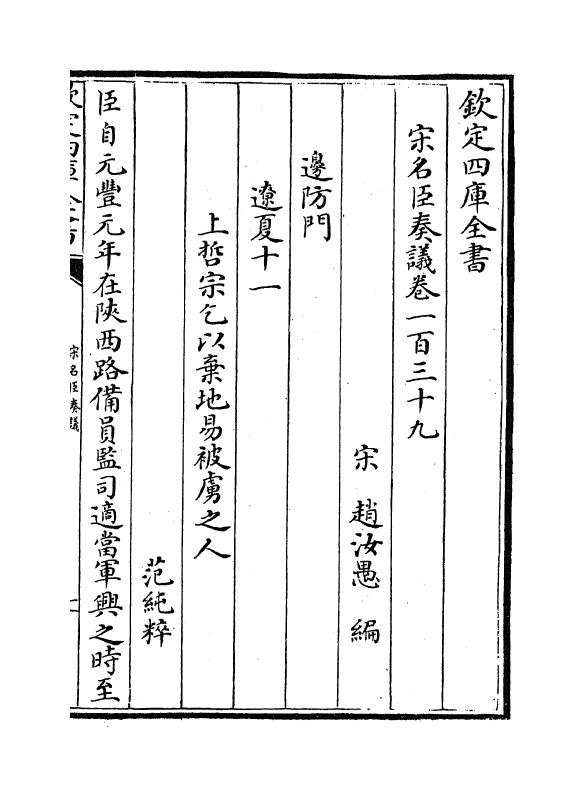 欽定四庫全書
宋名臣奏議卷一百三十九
宋 趙汝愚 編
邊防門
遼夏十一
上哲宗乞以棄地易被虜之人
范純粹
臣自元豐元年在陝西路備員監司適當軍興之時至
欽定四庫全書
宋名臣奏議